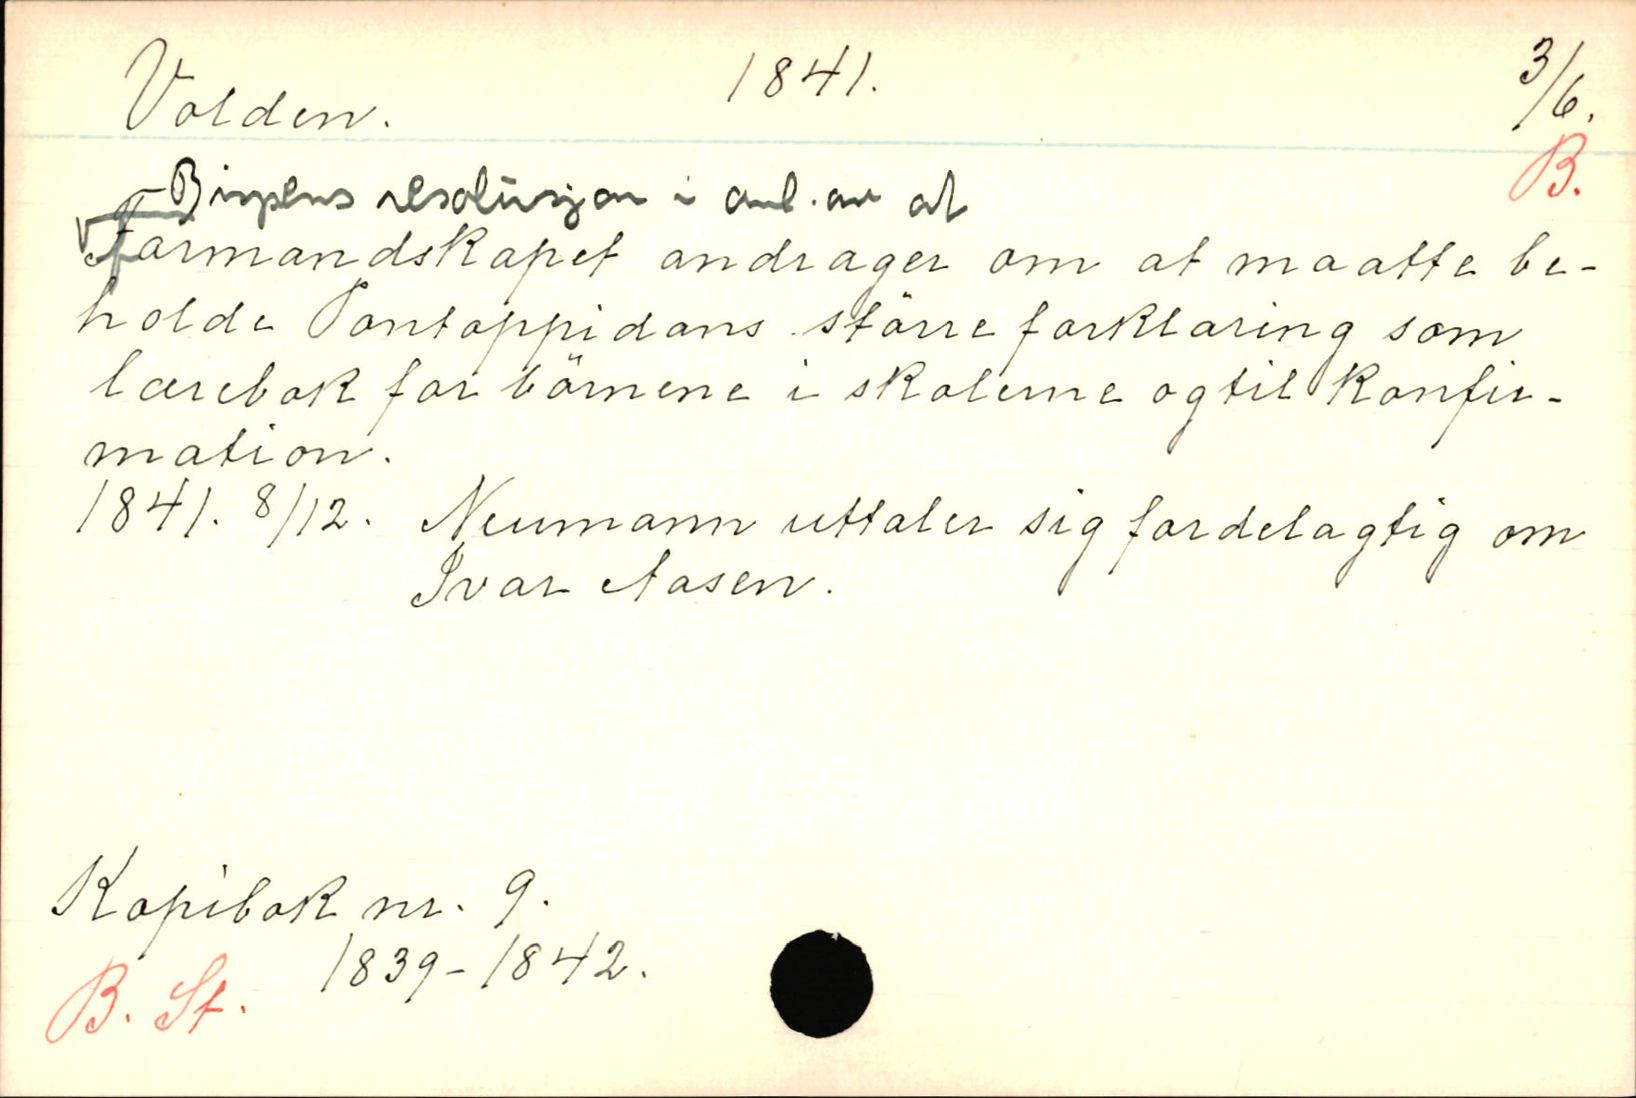 Volden. 1841. 3/6.
B.
Bispens resolusjon i anl. av at
Formandskapet andrager om at maatte be-
holde Pontoppidans större forklaring som
lærebok for börnene i skolerne og til konfir-
mation.
1841. 8/12. Neumann uttaler sig fordelagtig om
Ivar Aasen.
Kopibok nr. 9.
1839-1842.
B. St.